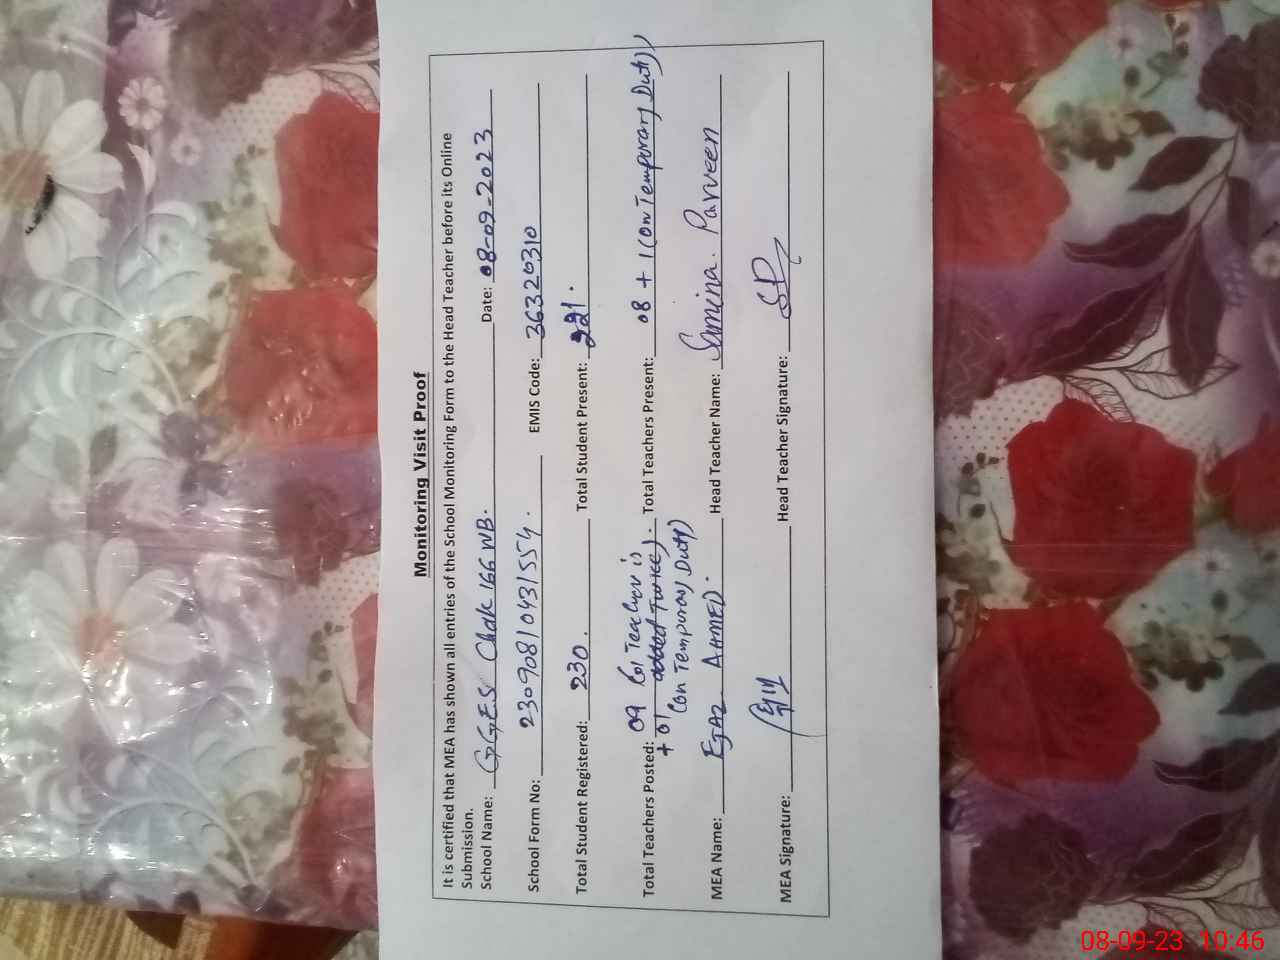 Monitoring Visit Proof
It is certified that MEA has shown all entries of the School Monitoring Form to the Head Teacher before its Online
Submission.
School Name: GGES Chak 166 WB. Date: 08-09-2023
School Form No: 23090810431554. EMIS Code: 36320310
Total Student Registered: 230. Total Student Present: 221.
Total Teachers Posted: 09 (01 Teacher is Total Teachers Present: 08 + 1 (on Temporary Duty)
+ 01 added twice).
(on Temporary Duty)
MEA Name: EJAZ AHMED. Head Teacher Name: Samina. Parveen
MEA Signature: Head Teacher Signature: SP
08-09-23 10:46